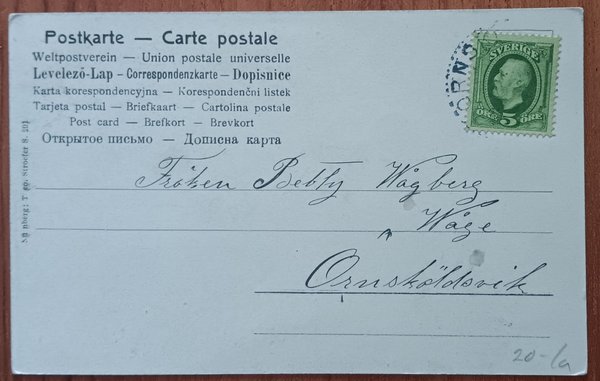 Postkarte — Carte postale
Weltpostverein — Union postale universelle
Levelező-Lap – Correspondenzkarte – Dopisnice
Karta korespondencyjna — Korespondenční listek
Tarjeta postal — Briefkaart — Cartolina postale
Post card — Brefkort — Brevkort
Открытое письмо — Дописна карта
ÖRNS
SVERIGE
ÖRE 5 ÖRE
Fröken Betty Wågberg
Wåge
Ornsköldsvik
Stroefer S. 201
20-